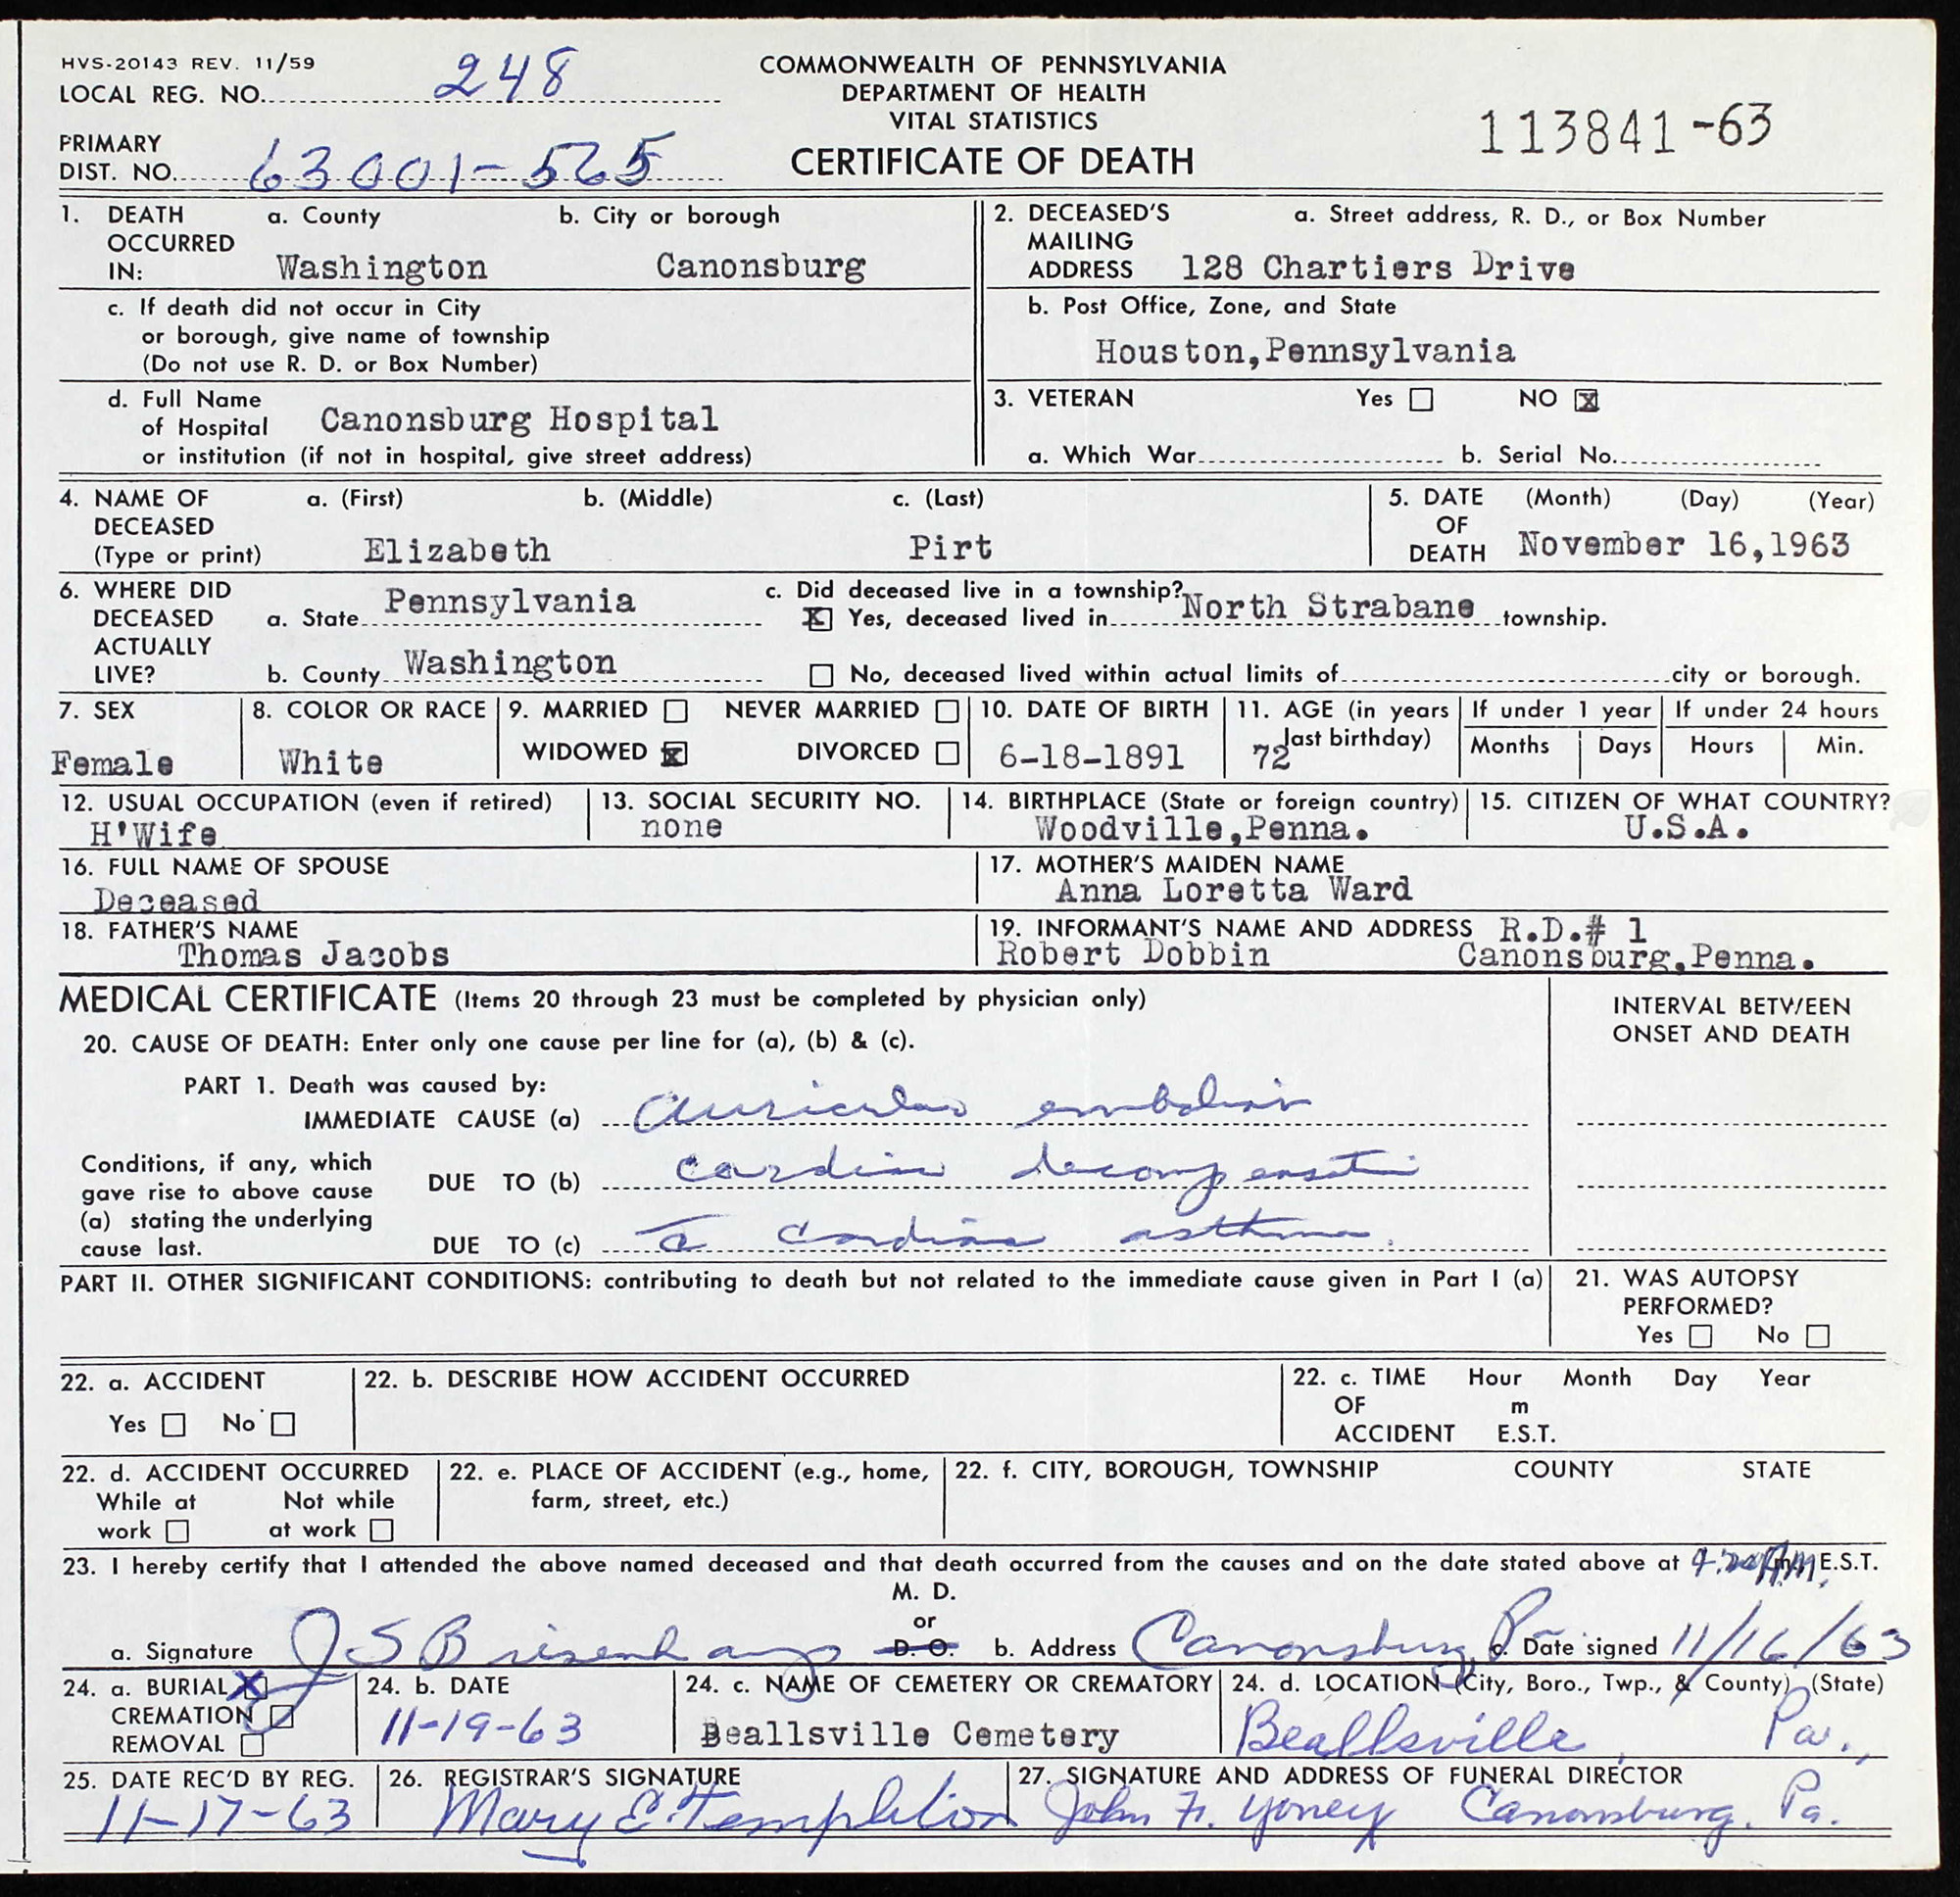 HVS-20143 REV. 11/59
LOCAL REG. NO. 248
COMMONWEALTH OF PENNSYLVANIA
DEPARTMENT OF HEALTH
VITAL STATISTICS
CERTIFICATE OF DEATH
113841-63
PRIMARY
DIST. NO. 63001-565
1. DEATH OCCURRED IN: a. County Washington b. City or borough Canonsburg
c. If death did not occur in City
or borough, give name of township
(Do not use R. D. or Box Number)
d. Full Name
of Hospital Canonsburg Hospital
or institution (if not in hospital, give street address)
2. DECEASED'S MAILING ADDRESS a. Street address, R. D., or Box Number
128 Chartiers Drive
b. Post Office, Zone, and State
Houston,Pennsylvania
3. VETERAN Yes NO X
a. Which War b. Serial No.
4. NAME OF DECEASED (Type or print) a. (First) Elizabeth b. (Middle) c. (Last) Pirt
5. DATE OF DEATH (Month) (Day) (Year)
November 16,1963
6. WHERE DID DECEASED ACTUALLY LIVE? a. State Pennsylvania
b. County Washington
c. Did deceased live in a township?
X Yes, deceased lived in North Strabane township.
No, deceased lived within actual limits of city or borough.
7. SEX Female
8. COLOR OR RACE White
9. MARRIED NEVER MARRIED
WIDOWED X DIVORCED
10. DATE OF BIRTH 6-18-1891
11. AGE (in years last birthday) 72
If under 1 year Months Days
If under 24 hours Hours Min.
12. USUAL OCCUPATION (even if retired) H'Wife
13. SOCIAL SECURITY NO. none
14. BIRTHPLACE (State or foreign country) Woodville,Penna.
15. CITIZEN OF WHAT COUNTRY? U.S.A.
16. FULL NAME OF SPOUSE Deceased
17. MOTHER'S MAIDEN NAME Anna Loretta Ward
18. FATHER'S NAME Thomas Jacobs
19. INFORMANT'S NAME AND ADDRESS R.D.# 1
Robert Dobbin Canonsburg,Penna.
MEDICAL CERTIFICATE (Items 20 through 23 must be completed by physician only)
INTERVAL BETWEEN ONSET AND DEATH
20. CAUSE OF DEATH: Enter only one cause per line for (a), (b) & (c).
PART 1. Death was caused by:
IMMEDIATE CAUSE (a) Auricular embolism
Conditions, if any, which
gave rise to above cause
(a) stating the underlying
cause last.
DUE TO (b) cardiac decompensation
DUE TO (c) c̄ cardiac asthma.
PART II. OTHER SIGNIFICANT CONDITIONS: contributing to death but not related to the immediate cause given in Part I (a)
21. WAS AUTOPSY PERFORMED?
Yes No
22. a. ACCIDENT
Yes No
22. b. DESCRIBE HOW ACCIDENT OCCURRED
22. c. TIME OF ACCIDENT Hour Month Day Year
m
E.S.T.
22. d. ACCIDENT OCCURRED
While at work Not while at work
22. e. PLACE OF ACCIDENT (e.g., home, farm, street, etc.)
22. f. CITY, BOROUGH, TOWNSHIP COUNTY STATE
23. I hereby certify that I attended the above named deceased and that death occurred from the causes and on the date stated above at E.S.T.
M. D.
or
D. O.
a. Signature b. Address Canonsburg Pa c. Date signed 11/16/63
24. a. BURIAL X
CREMATION
REMOVAL
24. b. DATE 11-19-63
24. c. NAME OF CEMETERY OR CREMATORY Beallsville Cemetery
24. d. LOCATION (City, Boro., Twp., & County) (State)
Beallsville, Pa.,
25. DATE REC'D BY REG. 11-17-63
26. REGISTRAR'S SIGNATURE Mary E. Templeton
27. SIGNATURE AND ADDRESS OF FUNERAL DIRECTOR
John F. Yoney Canonsburg, Pa.